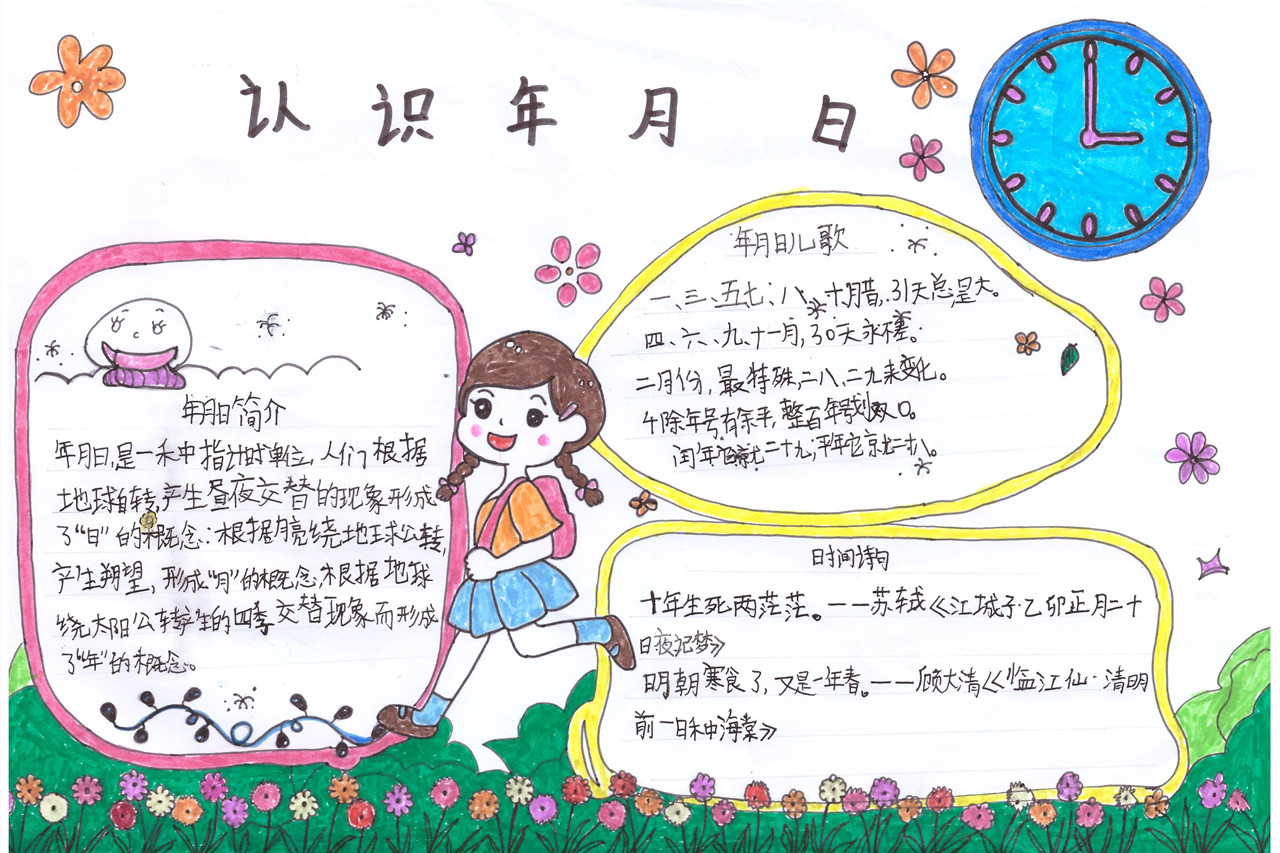 认识年月日
年月日简介
年月日,是一禾中指计时单位,人们根据
地球自转,产生昼夜交替的现象形成
了“日”的概念:根据月亮绕地球公转,
产生朔望,形成“月”的概念,根据地球
绕太阳公转产生的四季交替现象而形成
了“年”的概念。
年月日儿歌
一、三、五七、八、十月腊,31天总是大。
四、六、九、十一月,30天永不
二月份,最特殊,二八、二九来变化。
年号有余平,整百年
闰年 二十九,平年 二十八。
日时间诗句
十年生死两茫茫。——苏轼《江城子·乙卯正月二十
日夜记梦》
明朝寒食了,又是一年春。——顾大清《临江仙·清明
前一日种海棠》